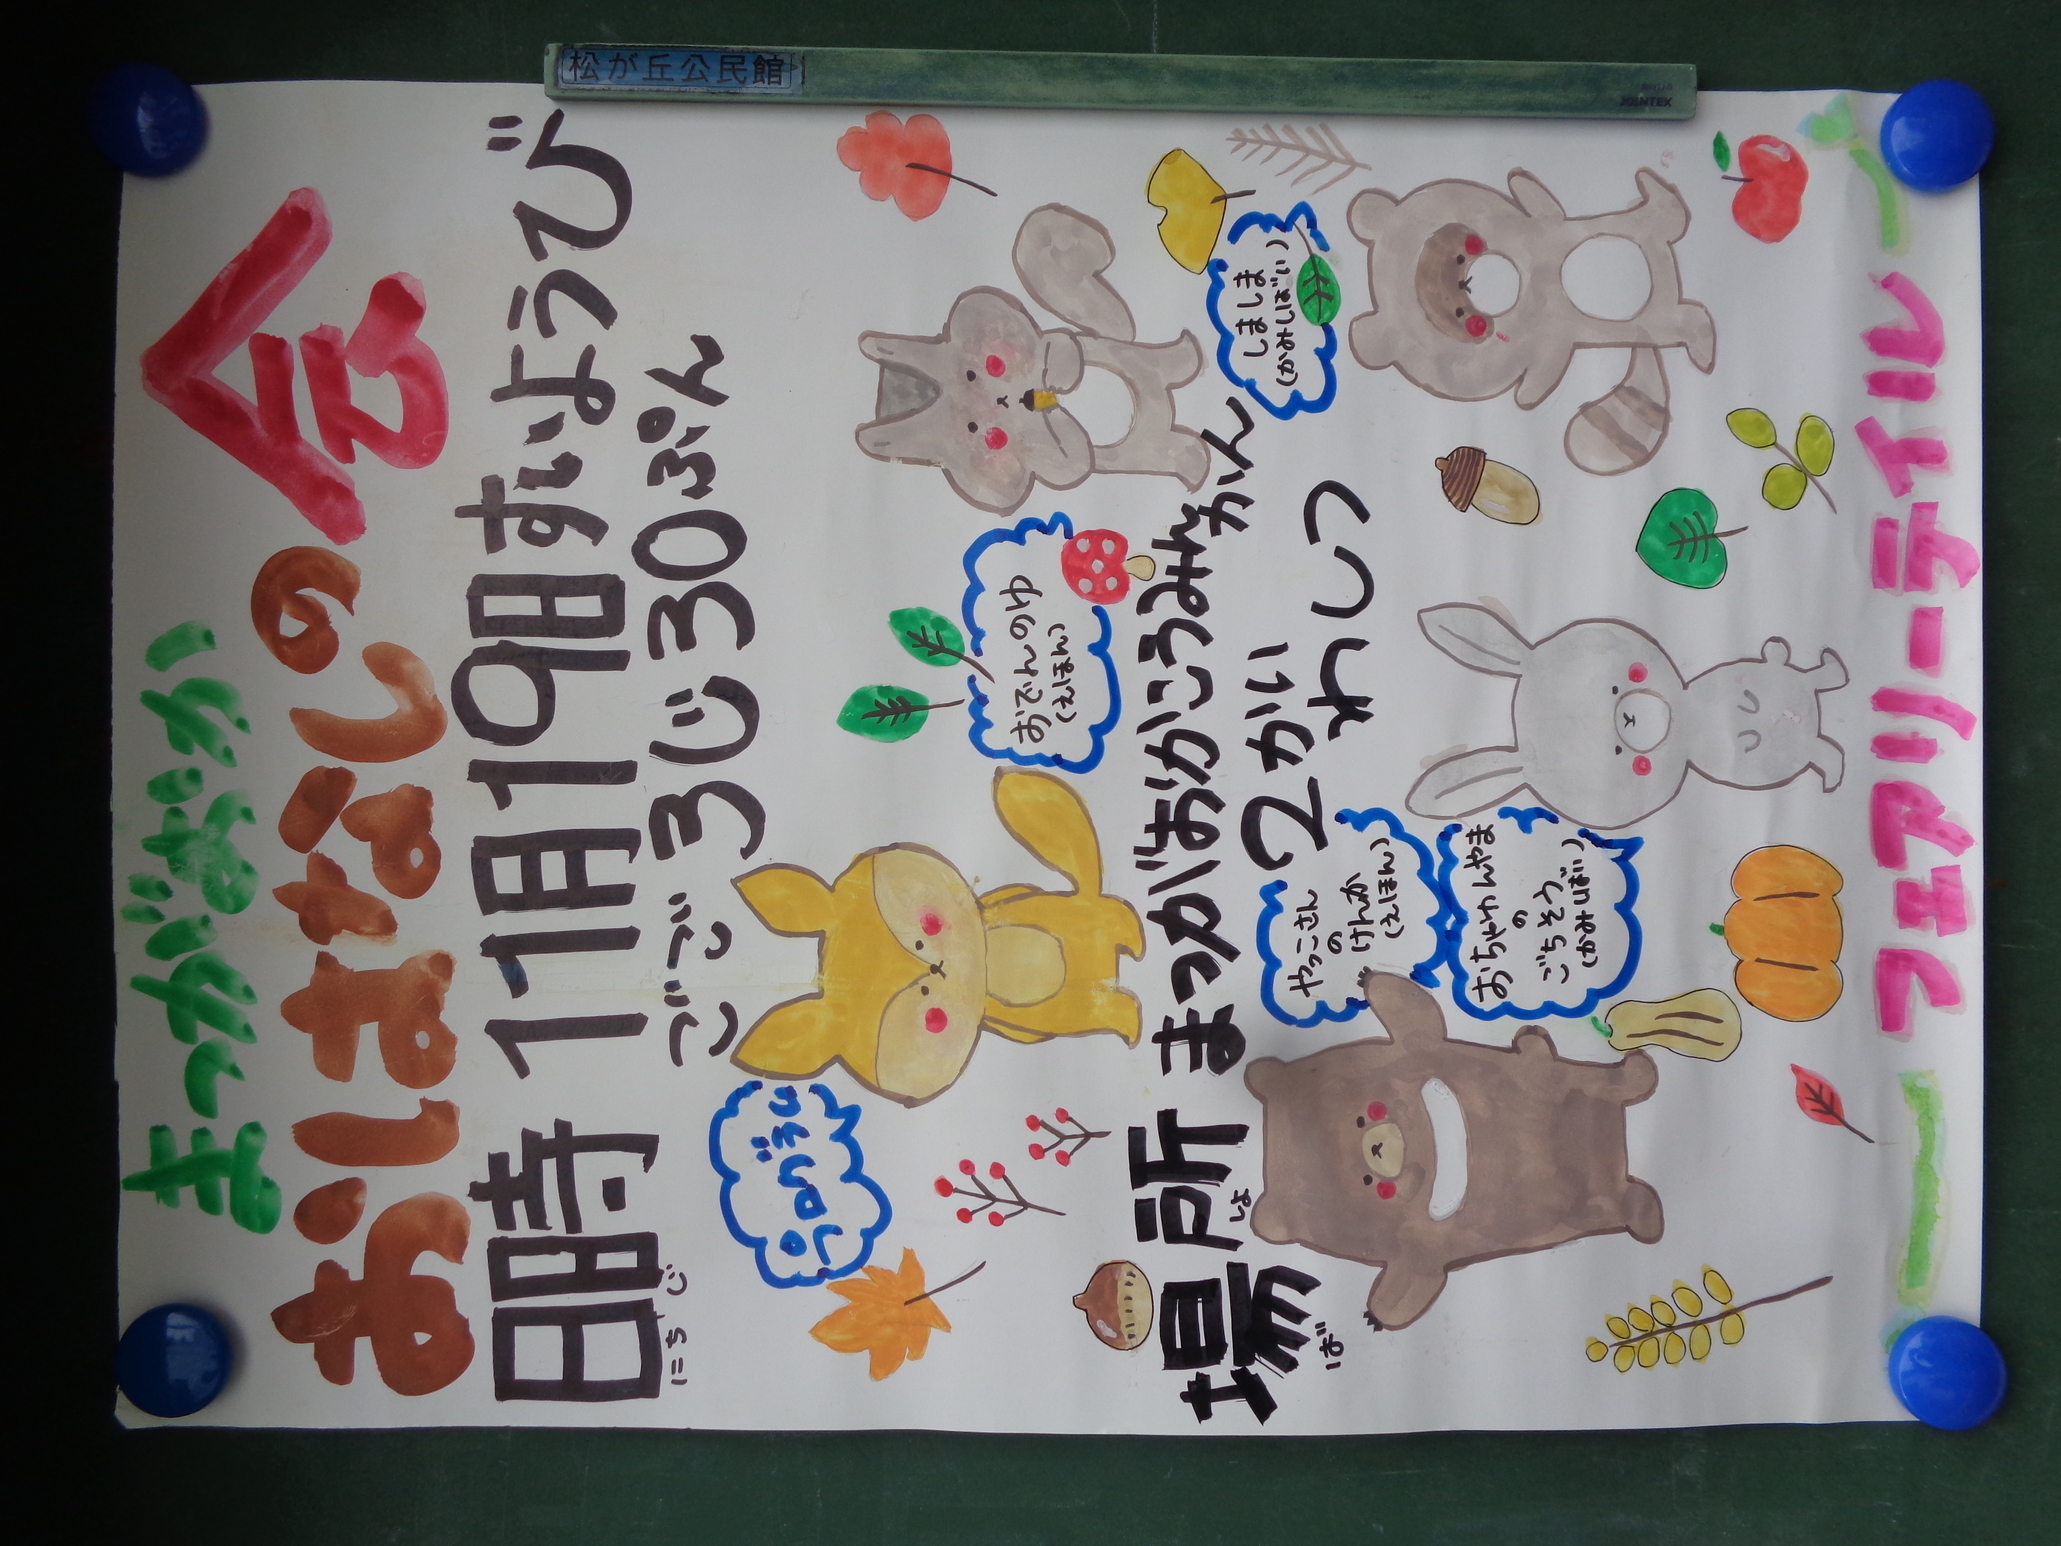 松が丘公民館
まつがおか
おはなしの会
日時 11月19日すいようび
にち じ
ごご3じ30ぷん
ぷろぐらむ
おでんのゆ
(えほん)
しましま
(かみしばい)
場所 まつがおかこうみんかん
ば しょ
2かい
わしつ
やっこさん
の
けんか
(えほん)
おちゃわんやま
の
ごちそう
(かみしばい)
フェアリーテイル